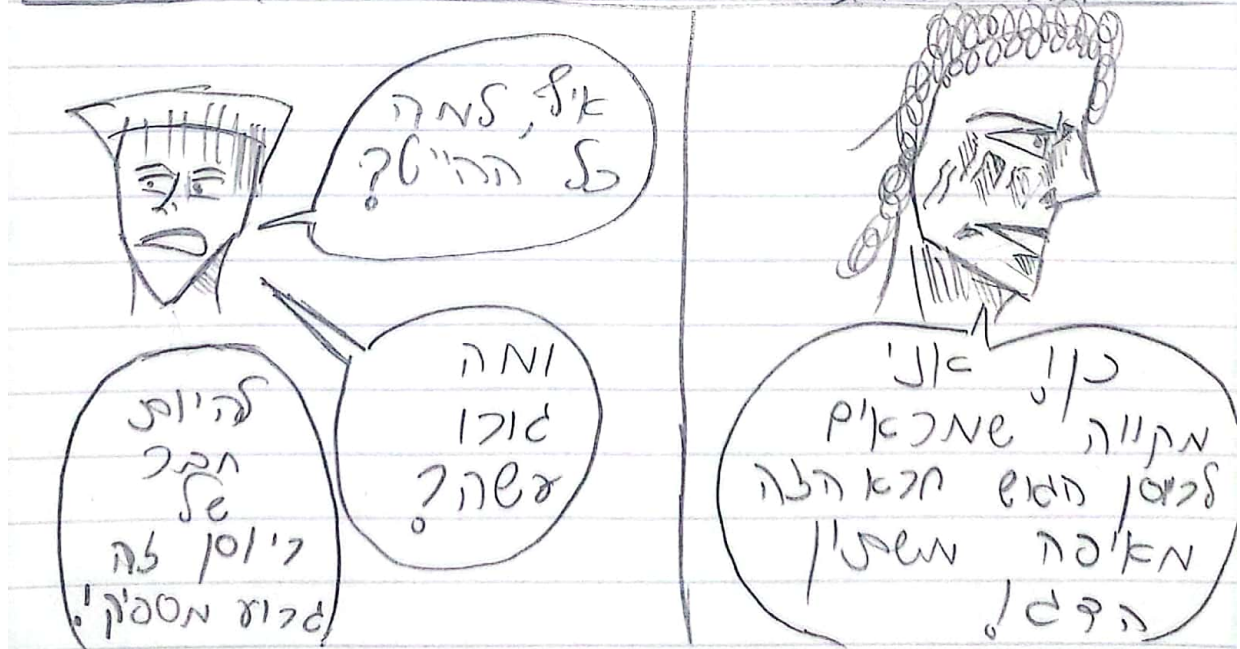 כן! אני
מקווה שמראים
לריוסן הגוש חרא הזה
מאיפה משתין
הדג!
אוף, למה
כל ההייט?
ומה
גורו
עשה?
להיות
חבר
של
ריוסן זה
גרוע מספיק!